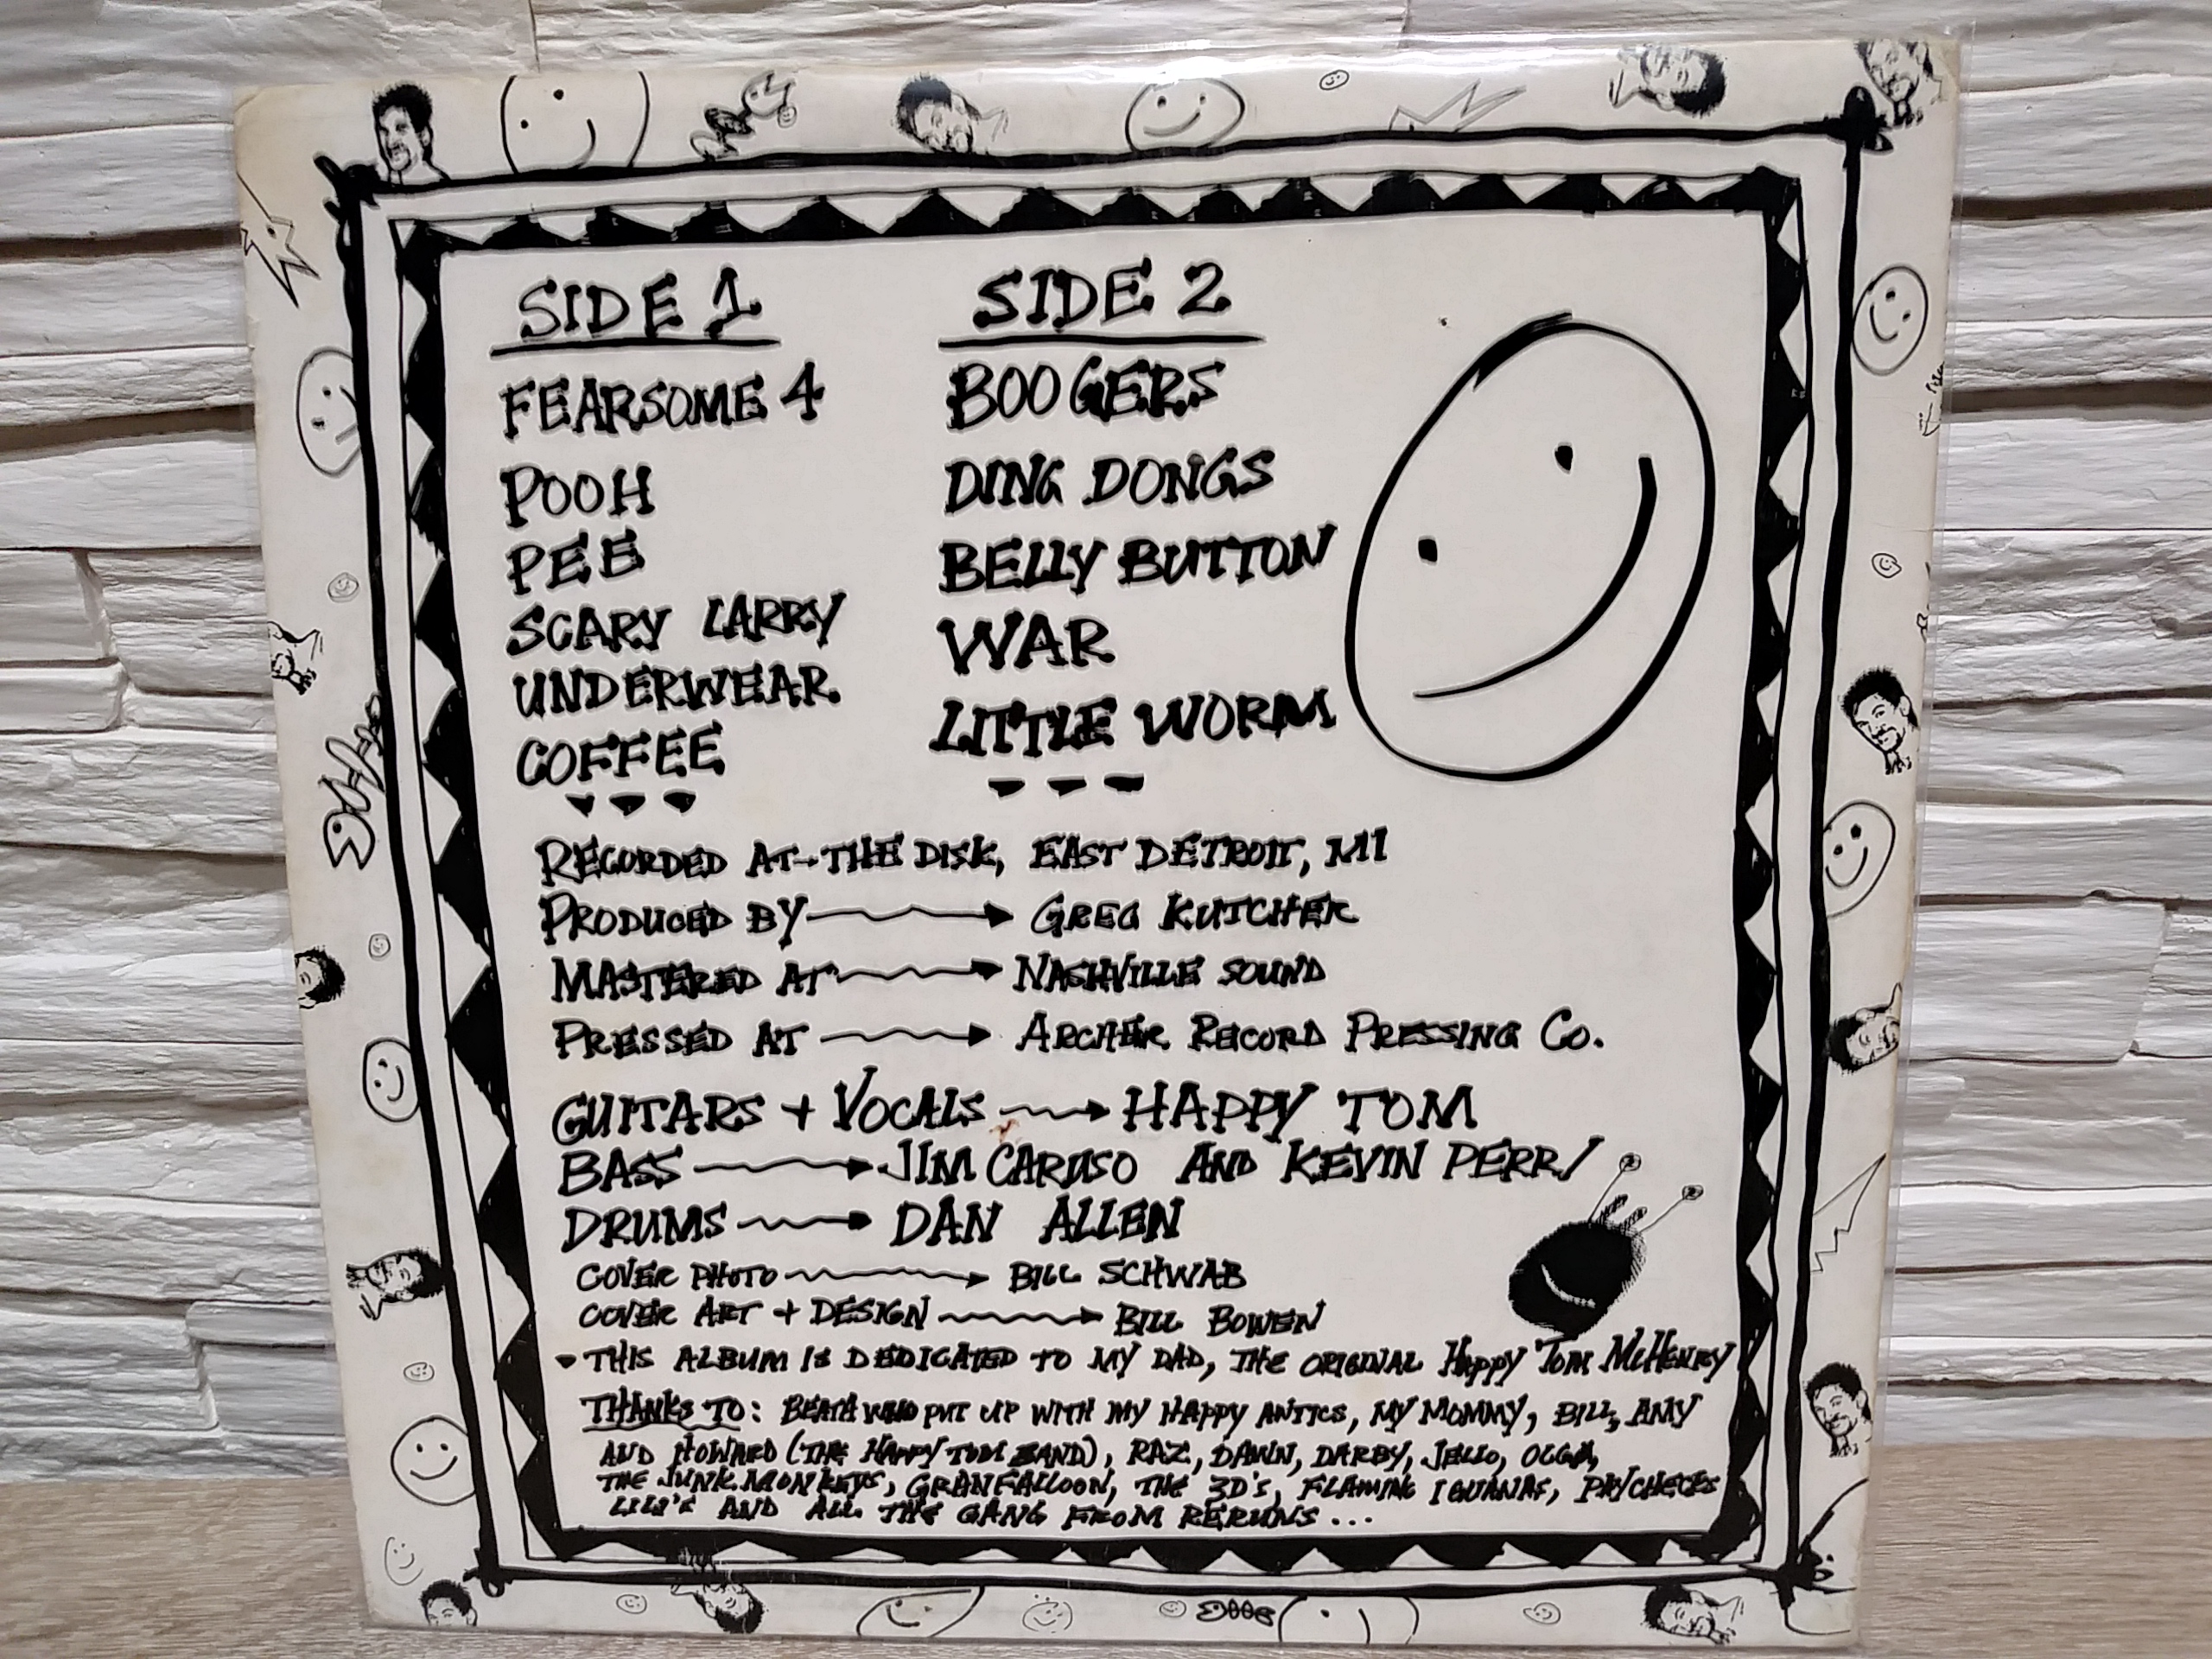 SIDE 1
FEARSOME 4
POOH
PEE
SCARY LARRY
UNDERWEAR
COFFEE
SIDE 2
BOOGERS
DING DONGS
BELLY BUTTON
WAR
LITTLE WORM
RECORDED AT THE DISK, EAST DETROIT, MI
PRODUCED BY GREG KUTCHER
MASTERED AT NASHVILLE SOUND
PRESSED AT ARCHER RECORD PRESSING CO.
GUITARS + VOCALS HAPPY TOM
BASS JIM CARUSO AND KEVIN PERRI
DRUMS DAN ALLEN
COVER PHOTO BILL SCHWAB
COVER ART + DESIGN BILL BOWEN
THIS ALBUM IS DEDICATED TO MY DAD, THE ORIGINAL HAPPY TOM MCHENRY
THANKS TO: WHO PUT UP WITH MY HAPPY ANTICS, MY MOMMY, BILL, AMY
AND HOWARD (THE HAPPY TOM BAND), RAZ, DAWN, DARBY, JELLO, OLGA,
THE JUNK MONKEYS, GRANFALLOON, THE 3D'S, FLAMING IGUANAS, PAYCHECKS
LILI'S AND ALL THE GANG FROM RERUNS...